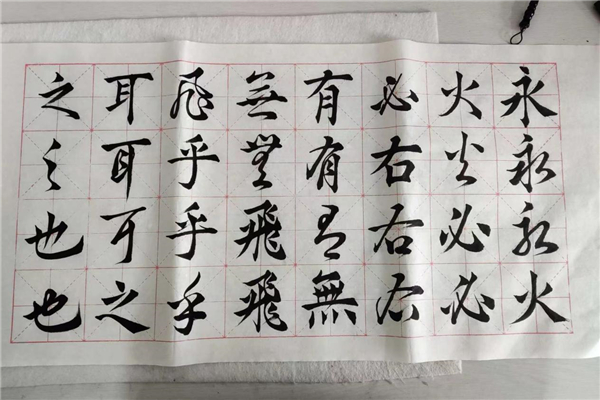 永永永火
火火必必
必右右右
有有有無
無無飛飛
飛乎乎乎
耳耳耳之
之之也也